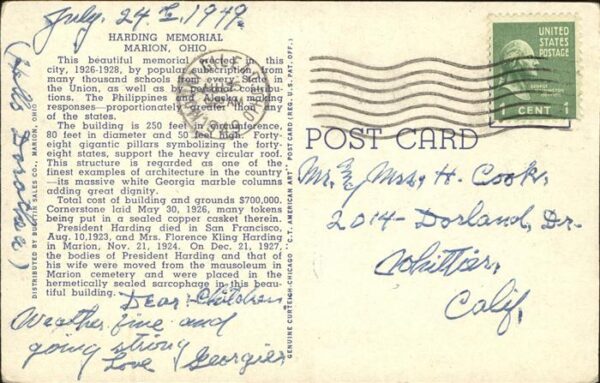 July. 24th, 1949.
HARDING MEMORIAL
MARION, OHIO
This beautiful memorial erected by this
city, 1926-1928, by popular subscription from
many thousand schools from every State in
the Union, as well as by personal contribu-
tions. The Philippines and Alaska making
responses—proportionately greater than any
of the states.
The building is 250 feet in circumference,
80 feet in diameter and 50 feet high. Forty-
eight gigantic pillars symbolizing the forty-
eight states, support the heavy circular roof.
This structure is regarded as one of the
finest examples of architecture in the country
—its massive white Georgia marble columns
adding great dignity.
Total cost of building and grounds $700,000.
Cornerstone laid May 30, 1926, many tokens
being put in a sealed copper casket therein.
President Harding died in San Francisco,
Aug. 10, 1923, and Mrs. Florence Kling Harding
in Marion, Nov. 21, 1924. On Dec. 21, 1927,
the bodies of President Harding and that of
his wife were moved from the mausoleum in
Marion cemetery and were placed in the
hermetically sealed sarcophage in this beau-
tiful building.
Dear: Children
Weather fine and
going strong
Love Georgie
(Hello Dorothea)
DISTRIBUTED BY SALES CO., MARION, OHIO
GENUINE CURTEICH-CHICAGO "C.T. AMERICAN ART" POST CARD (REG. U.S. PAT. OFF.)
UNITED
STATES
POSTAGE
1 CENT 1
POST CARD
Mr. & Mrs. H. Cook,
2014- Dorland, Dr.
Whittier,
Calif.